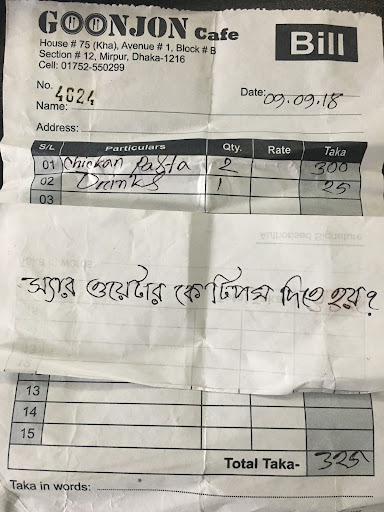 GOONJON Cafe
Bill
House # 75 (Kha), Avenue # 1, Block # B
Section # 12, Mirpur, Dhaka-1216
Cell: 01752-550299
No. 4624
Date: 09.09.18
Name:
Address:
S/L Particulars Qty. Rate Taka
01 Chickan Pasta 2 300
02 Drinks 1 25
03
Authorised Signature
স্যার ওয়েটার কে টিপস দিতে হয়?
13
14
15
Total Taka- 325
Taka in words: